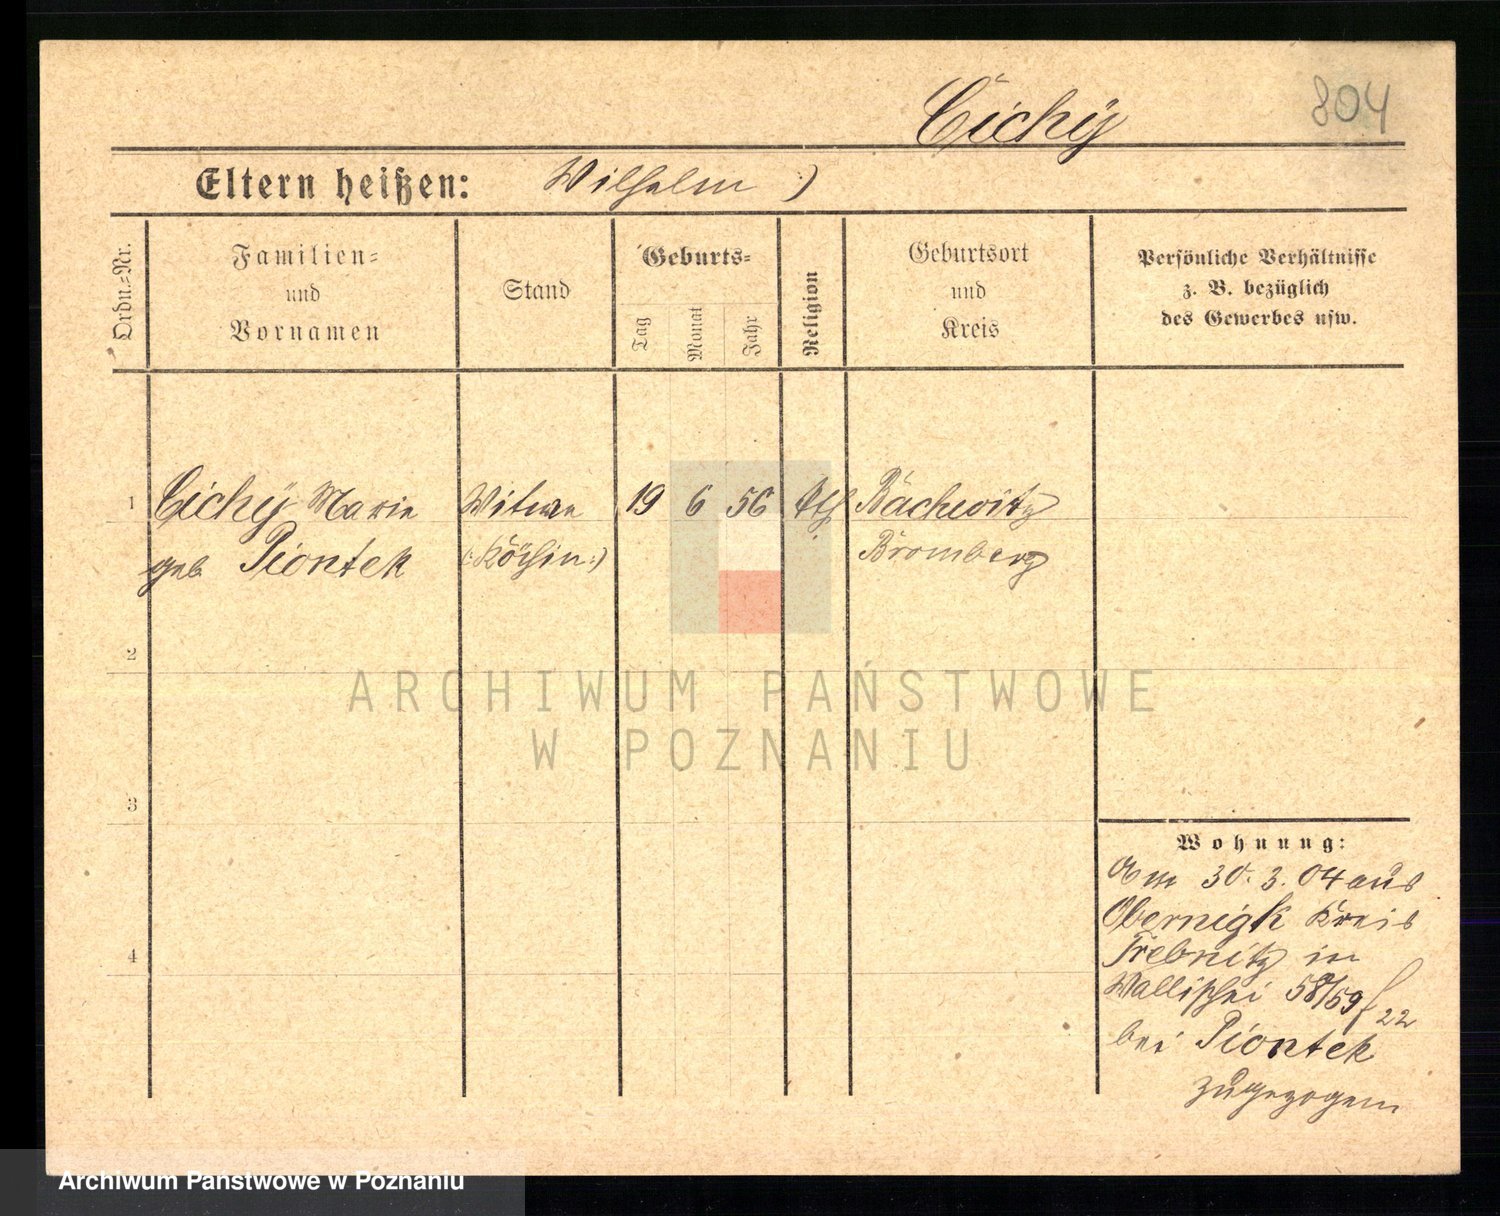 804
Cichÿ
Eltern heißen: Wilhelm )
Ordn.-Nr.
Familien-
und
Vornamen
Stand
Geburts-
Tag
Monat
Jahr
Religion
Geburtsort
und
Kreis
Persönliche Verhältnisse
z. B. bezüglich
des Gewerbes usw.
1 Cichÿ Marie Witwe 19 6 56 kth Bachwitz
geb Piontek (:Köchin:) Bromberg
2
ARCHIWUM PAŃSTWOWE
W POZNANIU
3
Wohnung:
Am 30.3.04 aus
Obernigk Kreis
Trebnitz in
Wallischei 58/59 f 22
bei Piontek
zugezogen
4
Archiwum Państwowe w Poznaniu